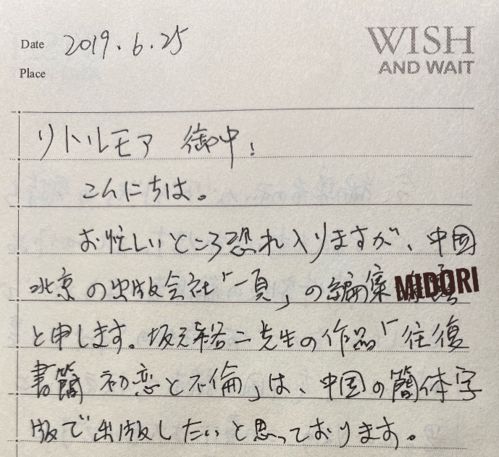 Date 2019.6.25
WISH
AND WAIT
Place
リトルモア 御中!
こんにちは。
お忙しいところ恐れ入りますが、中国
北京の出版会社「一頁」の編集 MIDORI
と申します。坂元裕二先生の作品「往復
書簡 初恋と不倫」は、中国の簡体字
版で出版したいと思っております。